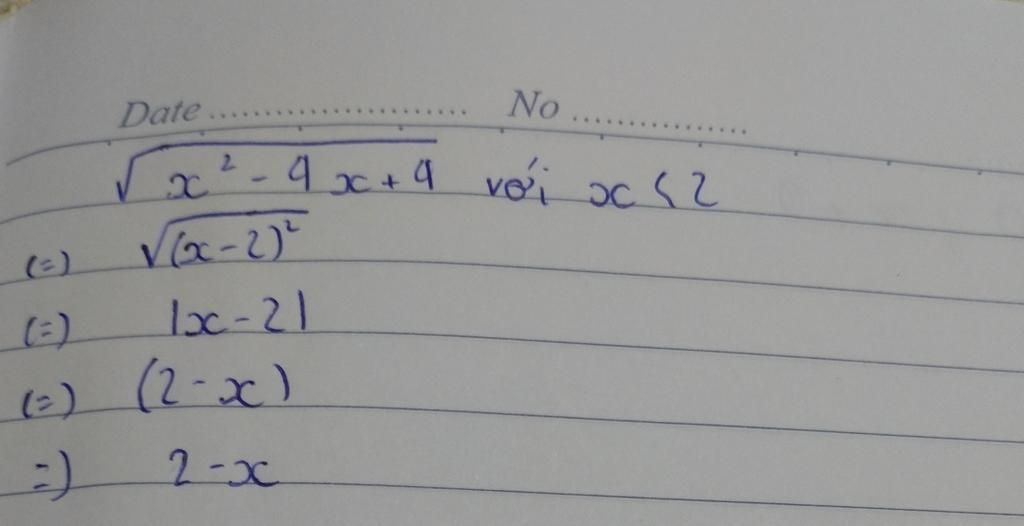 Date ........................ No ................
√(x² - 4x + 4) với x < 2
(=) √(x-2)²
(=) |x-2|
(=) (2-x)
=) 2-x